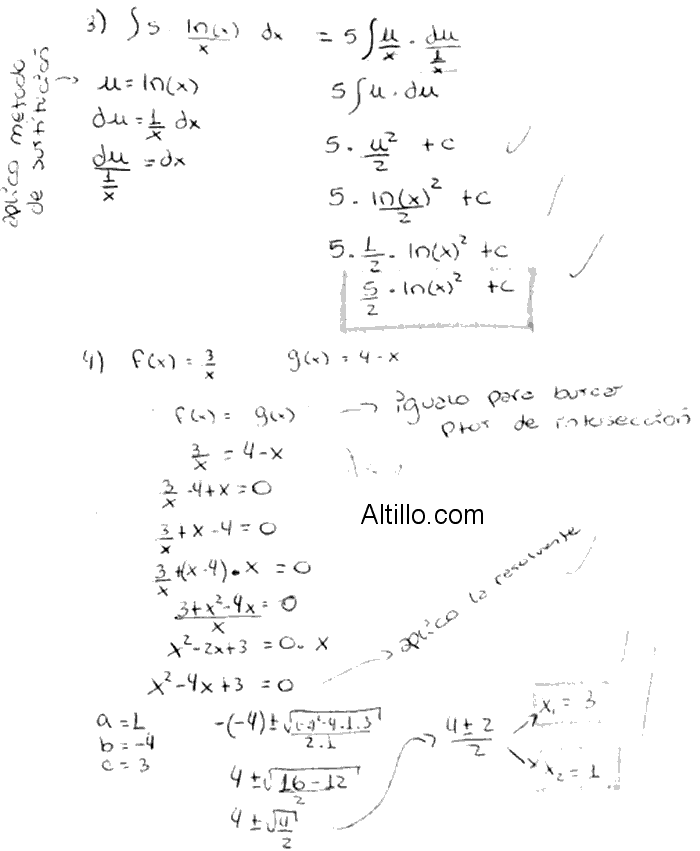 3) ∫ 5 · ln(x)/x dx = 5 ∫ u/x · du/(1/x)
aplico metodo
de sustitución
→ u = ln(x)
du = 1/x dx
du/(1/x) = dx
5 ∫ u · du
5 · u²/2 + c
5 · ln(x)²/2 + c
5 · 1/2 · ln(x)² + c
5/2 · ln(x)² + c
4) f(x) = 3/x g(x) = 4 - x
f(x) = g(x) → igualo para buscar
ptos de intersección
3/x = 4 - x
3/x - 4 + x = 0
3/x + x - 4 = 0
Altillo.com
3/x + (x - 4) · x = 0
(3 + x² - 4x)/x = 0
x² - 2x + 3 = 0 · x
x² - 4x + 3 = 0 → aplico la resolvente
a = 1
b = -4
c = 3
-(-4) ± √((-4)² - 4·1·3)/2·1
4 ± √(16 - 12)/2
4 ± √4/2
→ (4 ± 2)/2
x₁ = 3
x₂ = 1